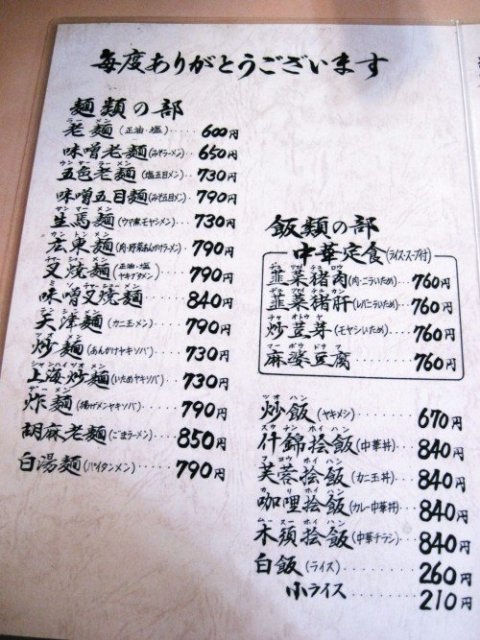 毎度ありがとうございます
麺類の部
老麺(正油・塩)‥‥600円
味噌老麺(みそラーメン)650円
五色老麺(塩五目メン)730円
味噌五目麺(みそ五目メン)790円
生馬麺(ウマ煮モヤシメン)730円
広東麺(肉・野菜あんかけラーメン)790円
叉焼麺(正油・塩ヤキブタメン)790円
味噌叉焼麺‥‥840円
天津麺(カニ玉メン)‥‥790円
炒麺(あんかけヤキソバ)‥‥730円
上海炒麺(いためヤキソバ)‥730円
炸麺(揚げメンヤキソバ)‥‥790円
胡麻老麺(ごまラーメン)‥‥850円
白湯麺(パイタンメン)‥‥790円
飯類の部
中華定食(ライス・スープ付)
韮菜猪肉(肉・ニラいため)‥760円
韮菜猪肝(レバニラいため)‥760円
炒荳芽(モヤシいため)‥‥760円
麻婆豆腐‥‥760円
炒飯(ヤキメシ)‥‥670円
什錦烩飯(中華丼)‥‥840円
芙蓉烩飯(カニ玉丼)‥‥840円
咖哩烩飯(カレー中華丼)‥840円
木須烩飯(中華チラシ)‥840円
白飯(ライス)‥‥260円
小ライス‥‥210円